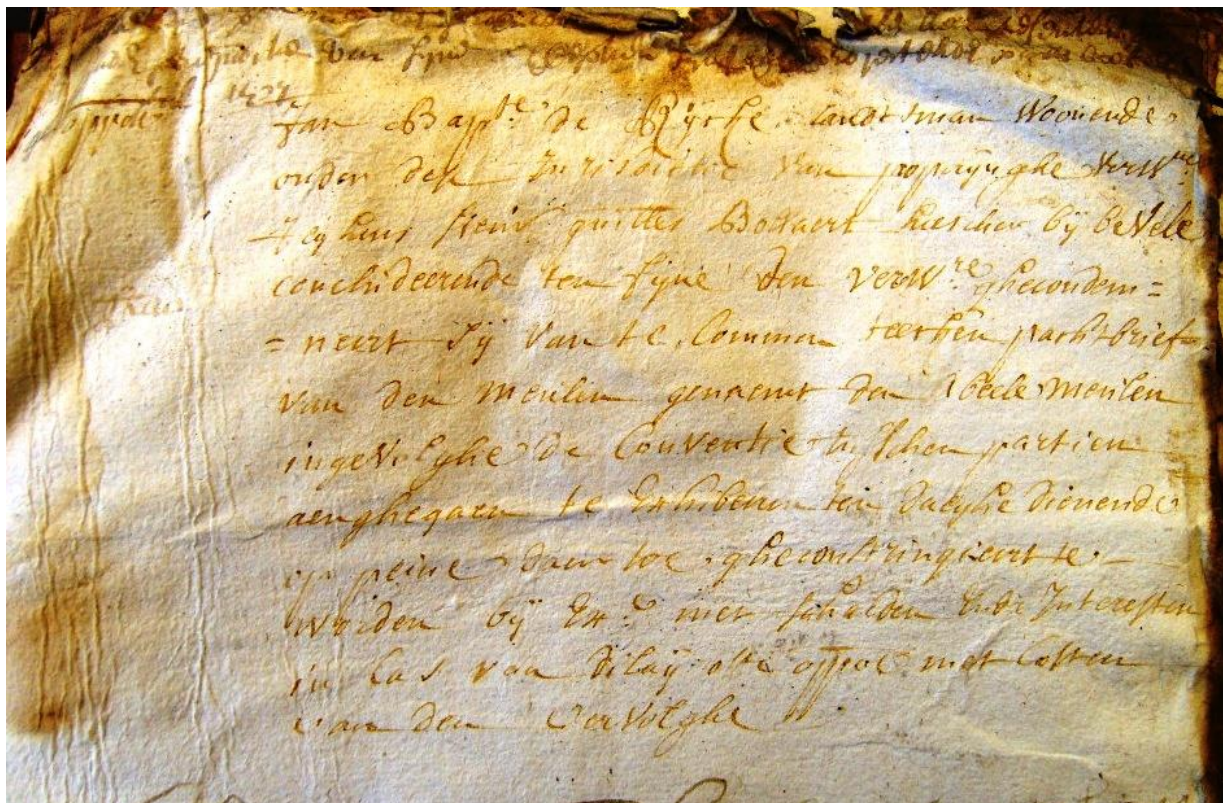 van sijne
Jan Bap.te de Rijcke landtsman Woonende
onder den Jurisdictie van poperijnghe verw.re
Jeghens sieur Bollaert heescher bij bevele
concluderende ten fijne den verw.re ghecondem=
=neert sij van te Commen pachtbrief
van den meulen genaemt den abeele meulen
ingevolghe de Conventie tusschen partien
aenghegaen te Exhiberen ten daeghe dienende
op peine daer toe ghecontringiert te
worden bij Ex.e met schaeden ende Interesten
in Cas van dilaij ofte oppoe met Costen
van den vervolghe